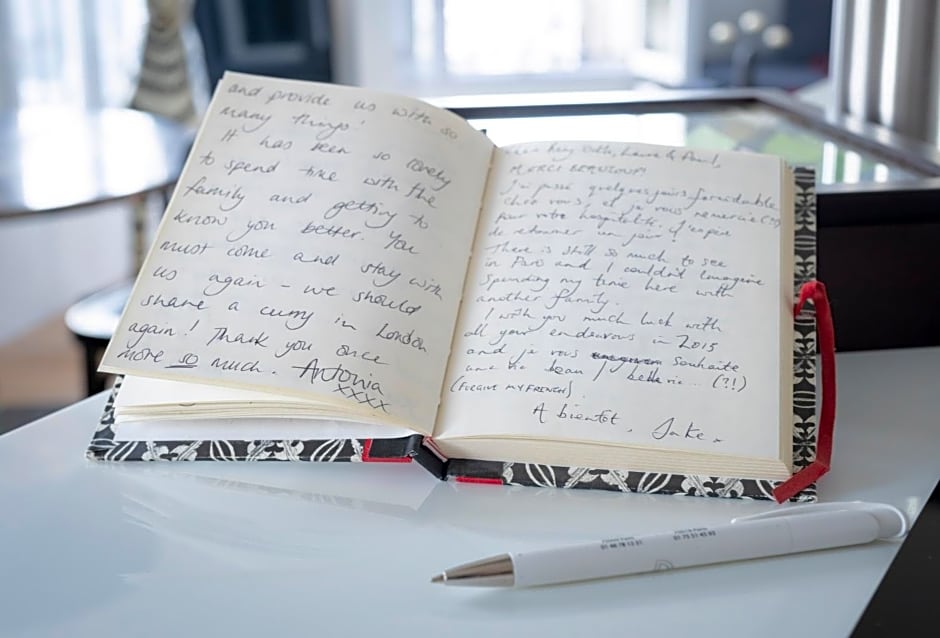 and provide us with so
many things!
It has been so lovely
to spend time with the
family and getting to
know you better. You
must come and stay with
us again - we should
share a curry in London
again! Thank you once
more so much. Antonia
xxxx
& Paul,
MERCI BEAUCOUP!
J'ai passé quelques jours formidable
chez vous, et je vous remercie (?!)
pour votre hospitalité, j'espère
de retourner un jour!
There is still so much to see
in Paris and I couldn't imagine
spending my time here with
another family.
I wish you much luck with
all your endeavours in 2015
and je vous souhaite
(?!)
(FORGIVE MY FRENCH)
A bientot, Jake x